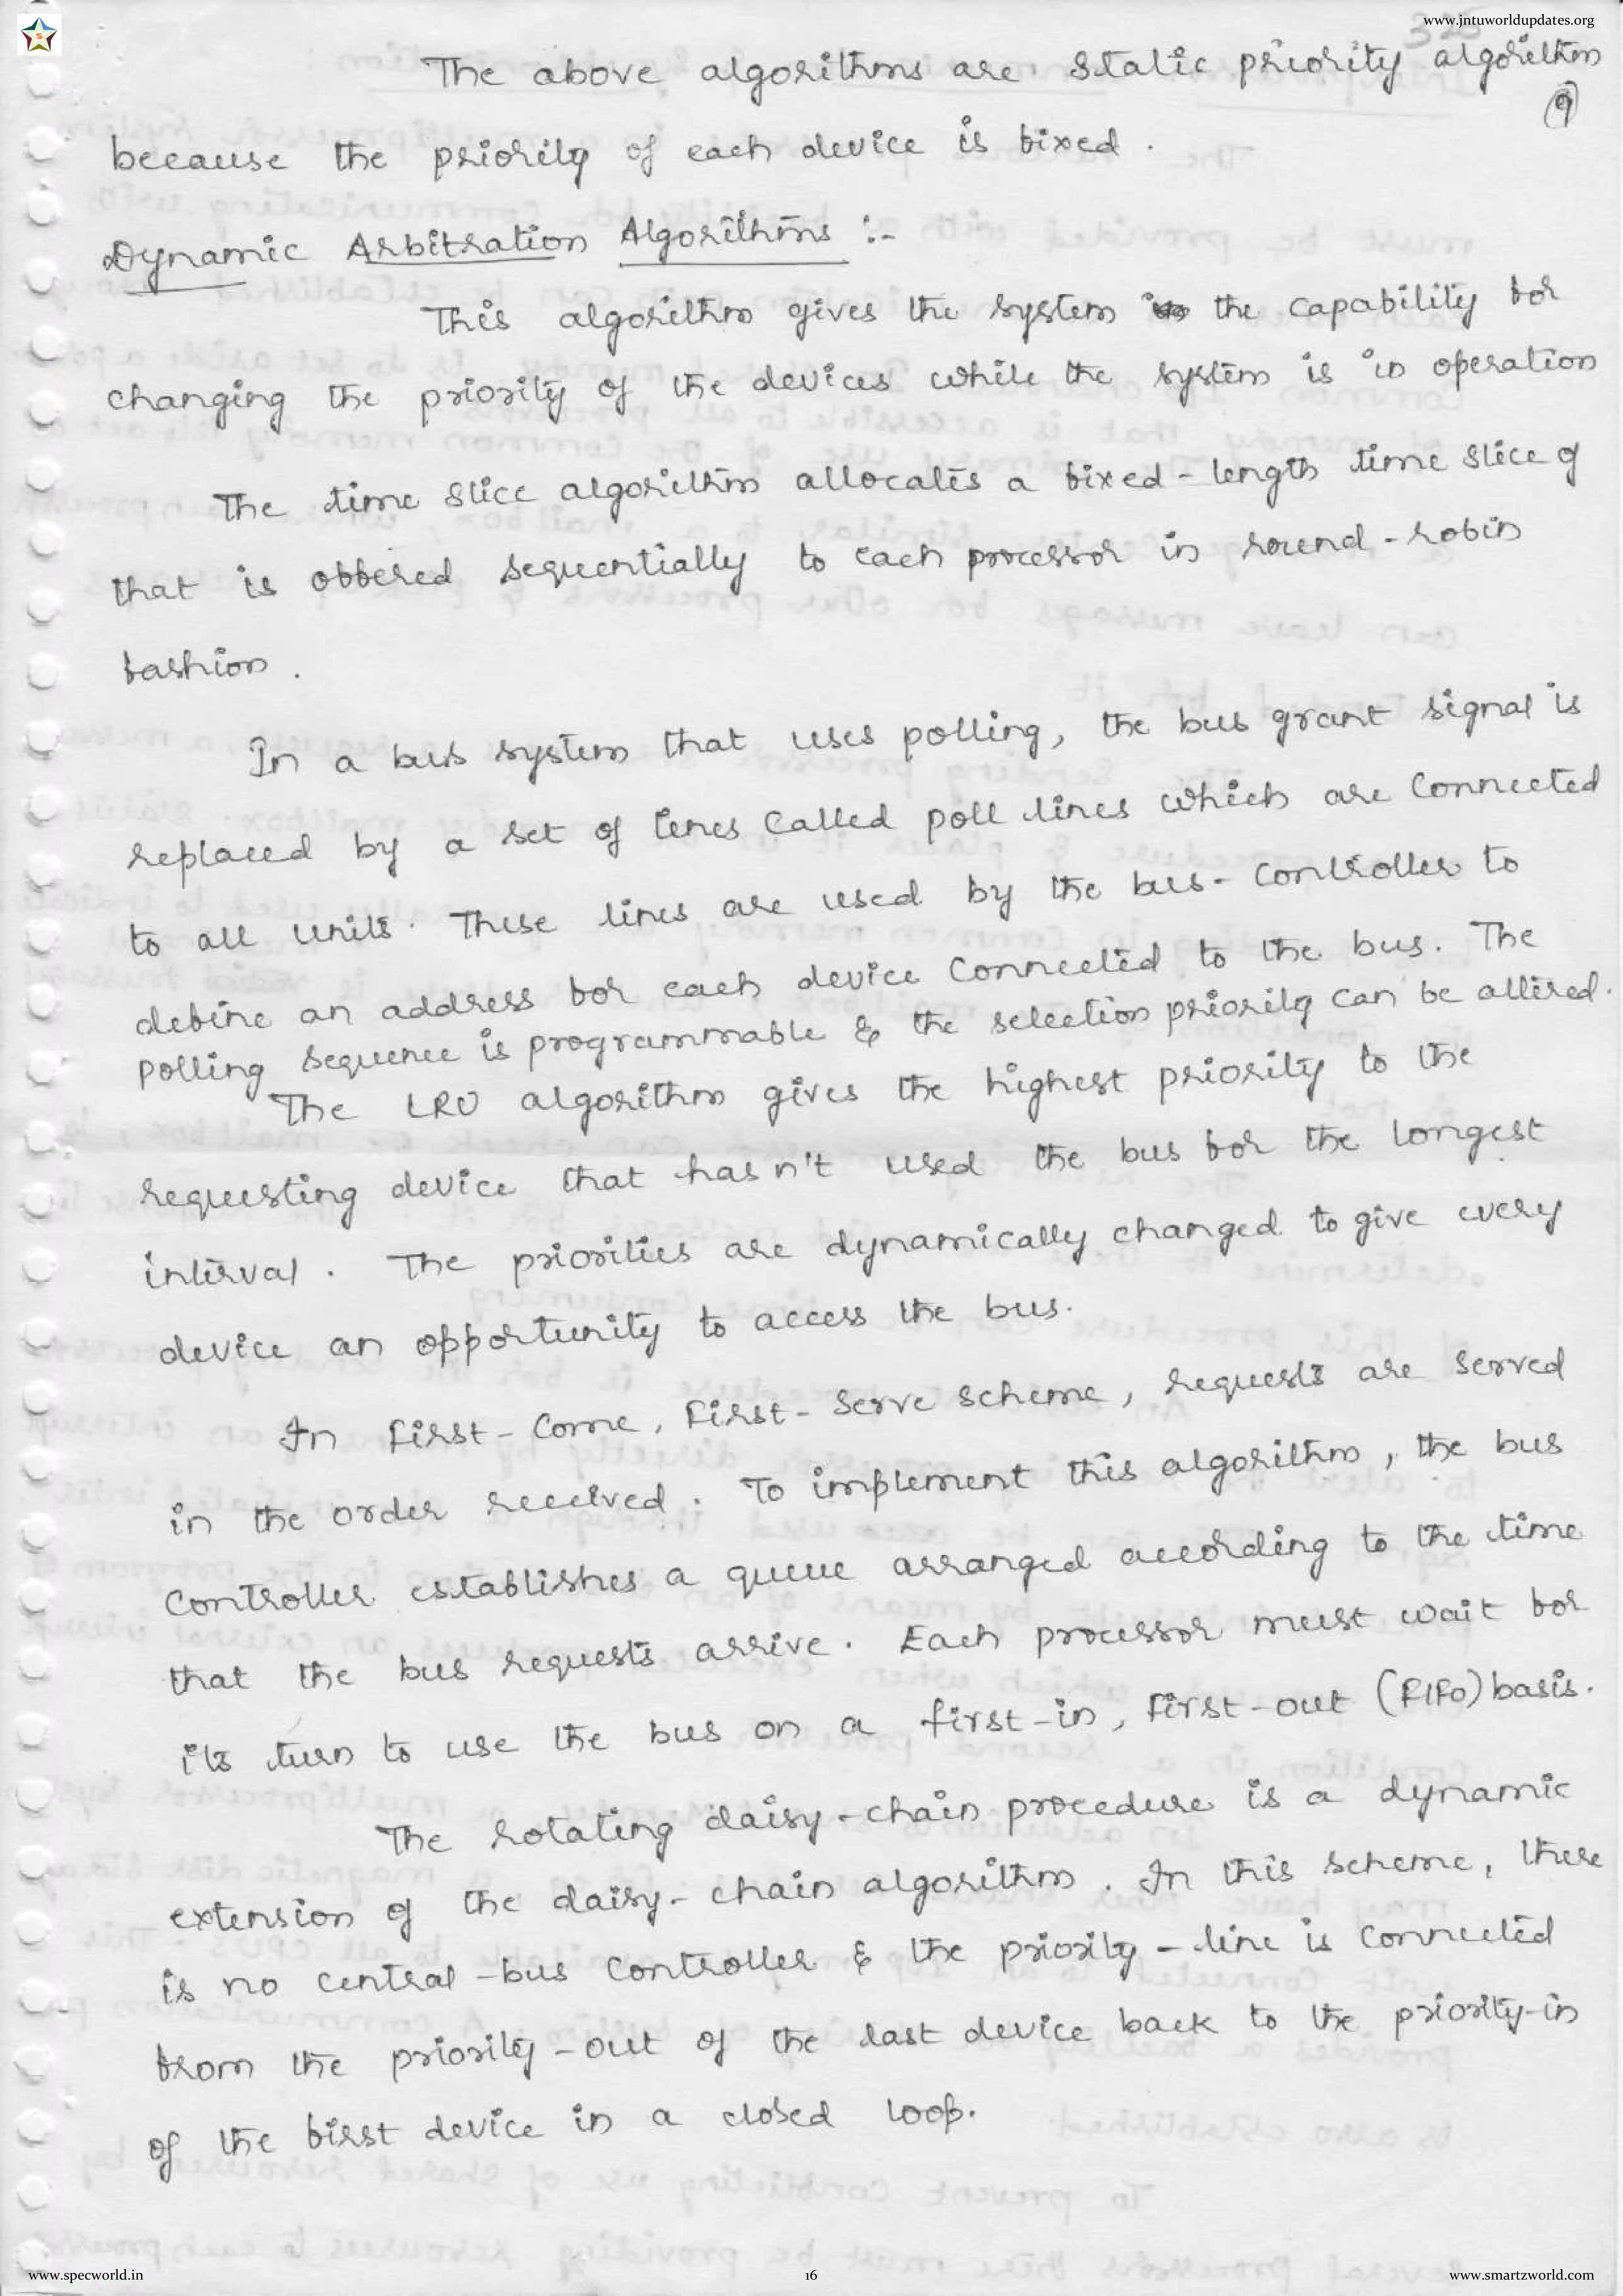 www.jntuworldupdates.org
325
The above algorithms are static priority algorithm
9
because the priority of each device is fixed.
Dynamic Arbitration Algorithms :-
This algorithm gives the system the capability for
changing the priority of the devices while the system is in operation
The time slice algorithm allocates a fixed-length time slice of
that is offered sequentially to each processor in round-robin
fashion.
In a bus system that uses polling, the bus grant signal is
replaced by a set of lines called poll lines which are connected
to all units. These lines are used by the bus-controller to
define an address for each device connected to the bus. The
polling sequence is programmable & the selection priority can be altered.
The LRU algorithm gives the highest priority to the
requesting device that hasn't used the bus for the longest
interval. The priorities are dynamically changed to give every
device an opportunity to access the bus.
In First-Come, First-Serve scheme, requests are served
in the order received. To implement this algorithm, the bus
controller establishes a queue arranged according to the time
that the bus requests arrive. Each processor must wait for
its turn to use the bus on a first-in, first-out (FIFO) basis.
The rotating daisy-chain procedure is a dynamic
extension of the daisy-chain algorithm. In this scheme, there
is no central-bus controller & the priority-line is connected
from the priority-out of the last device back to the priority-in
of the first device in a closed loop.
www.specworld.in
16
www.smartzworld.com